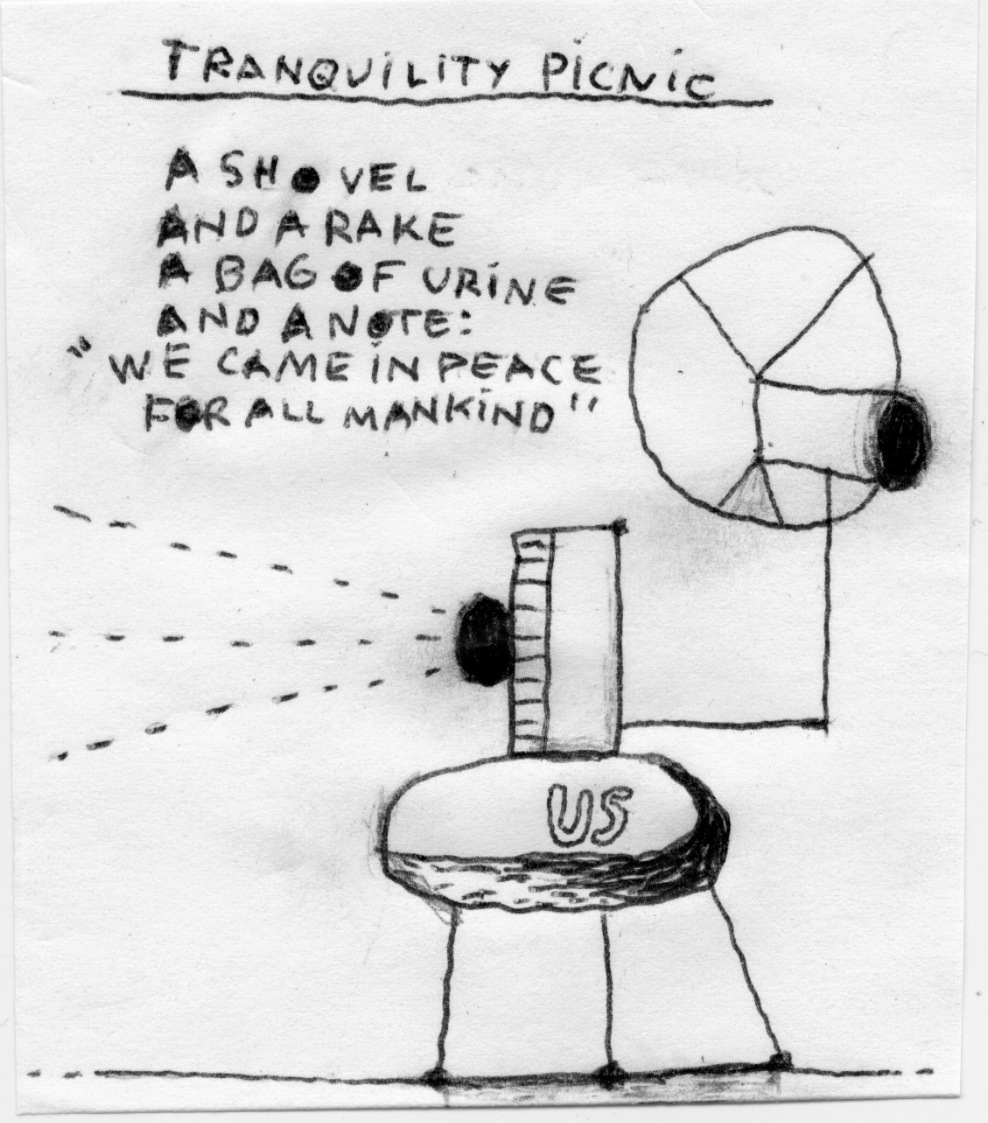 TRANQUILITY PICNIC
A SHOVEL
AND A RAKE
A BAG OF URINE
AND A NOTE:
"WE CAME IN PEACE
FOR ALL MANKIND"
US